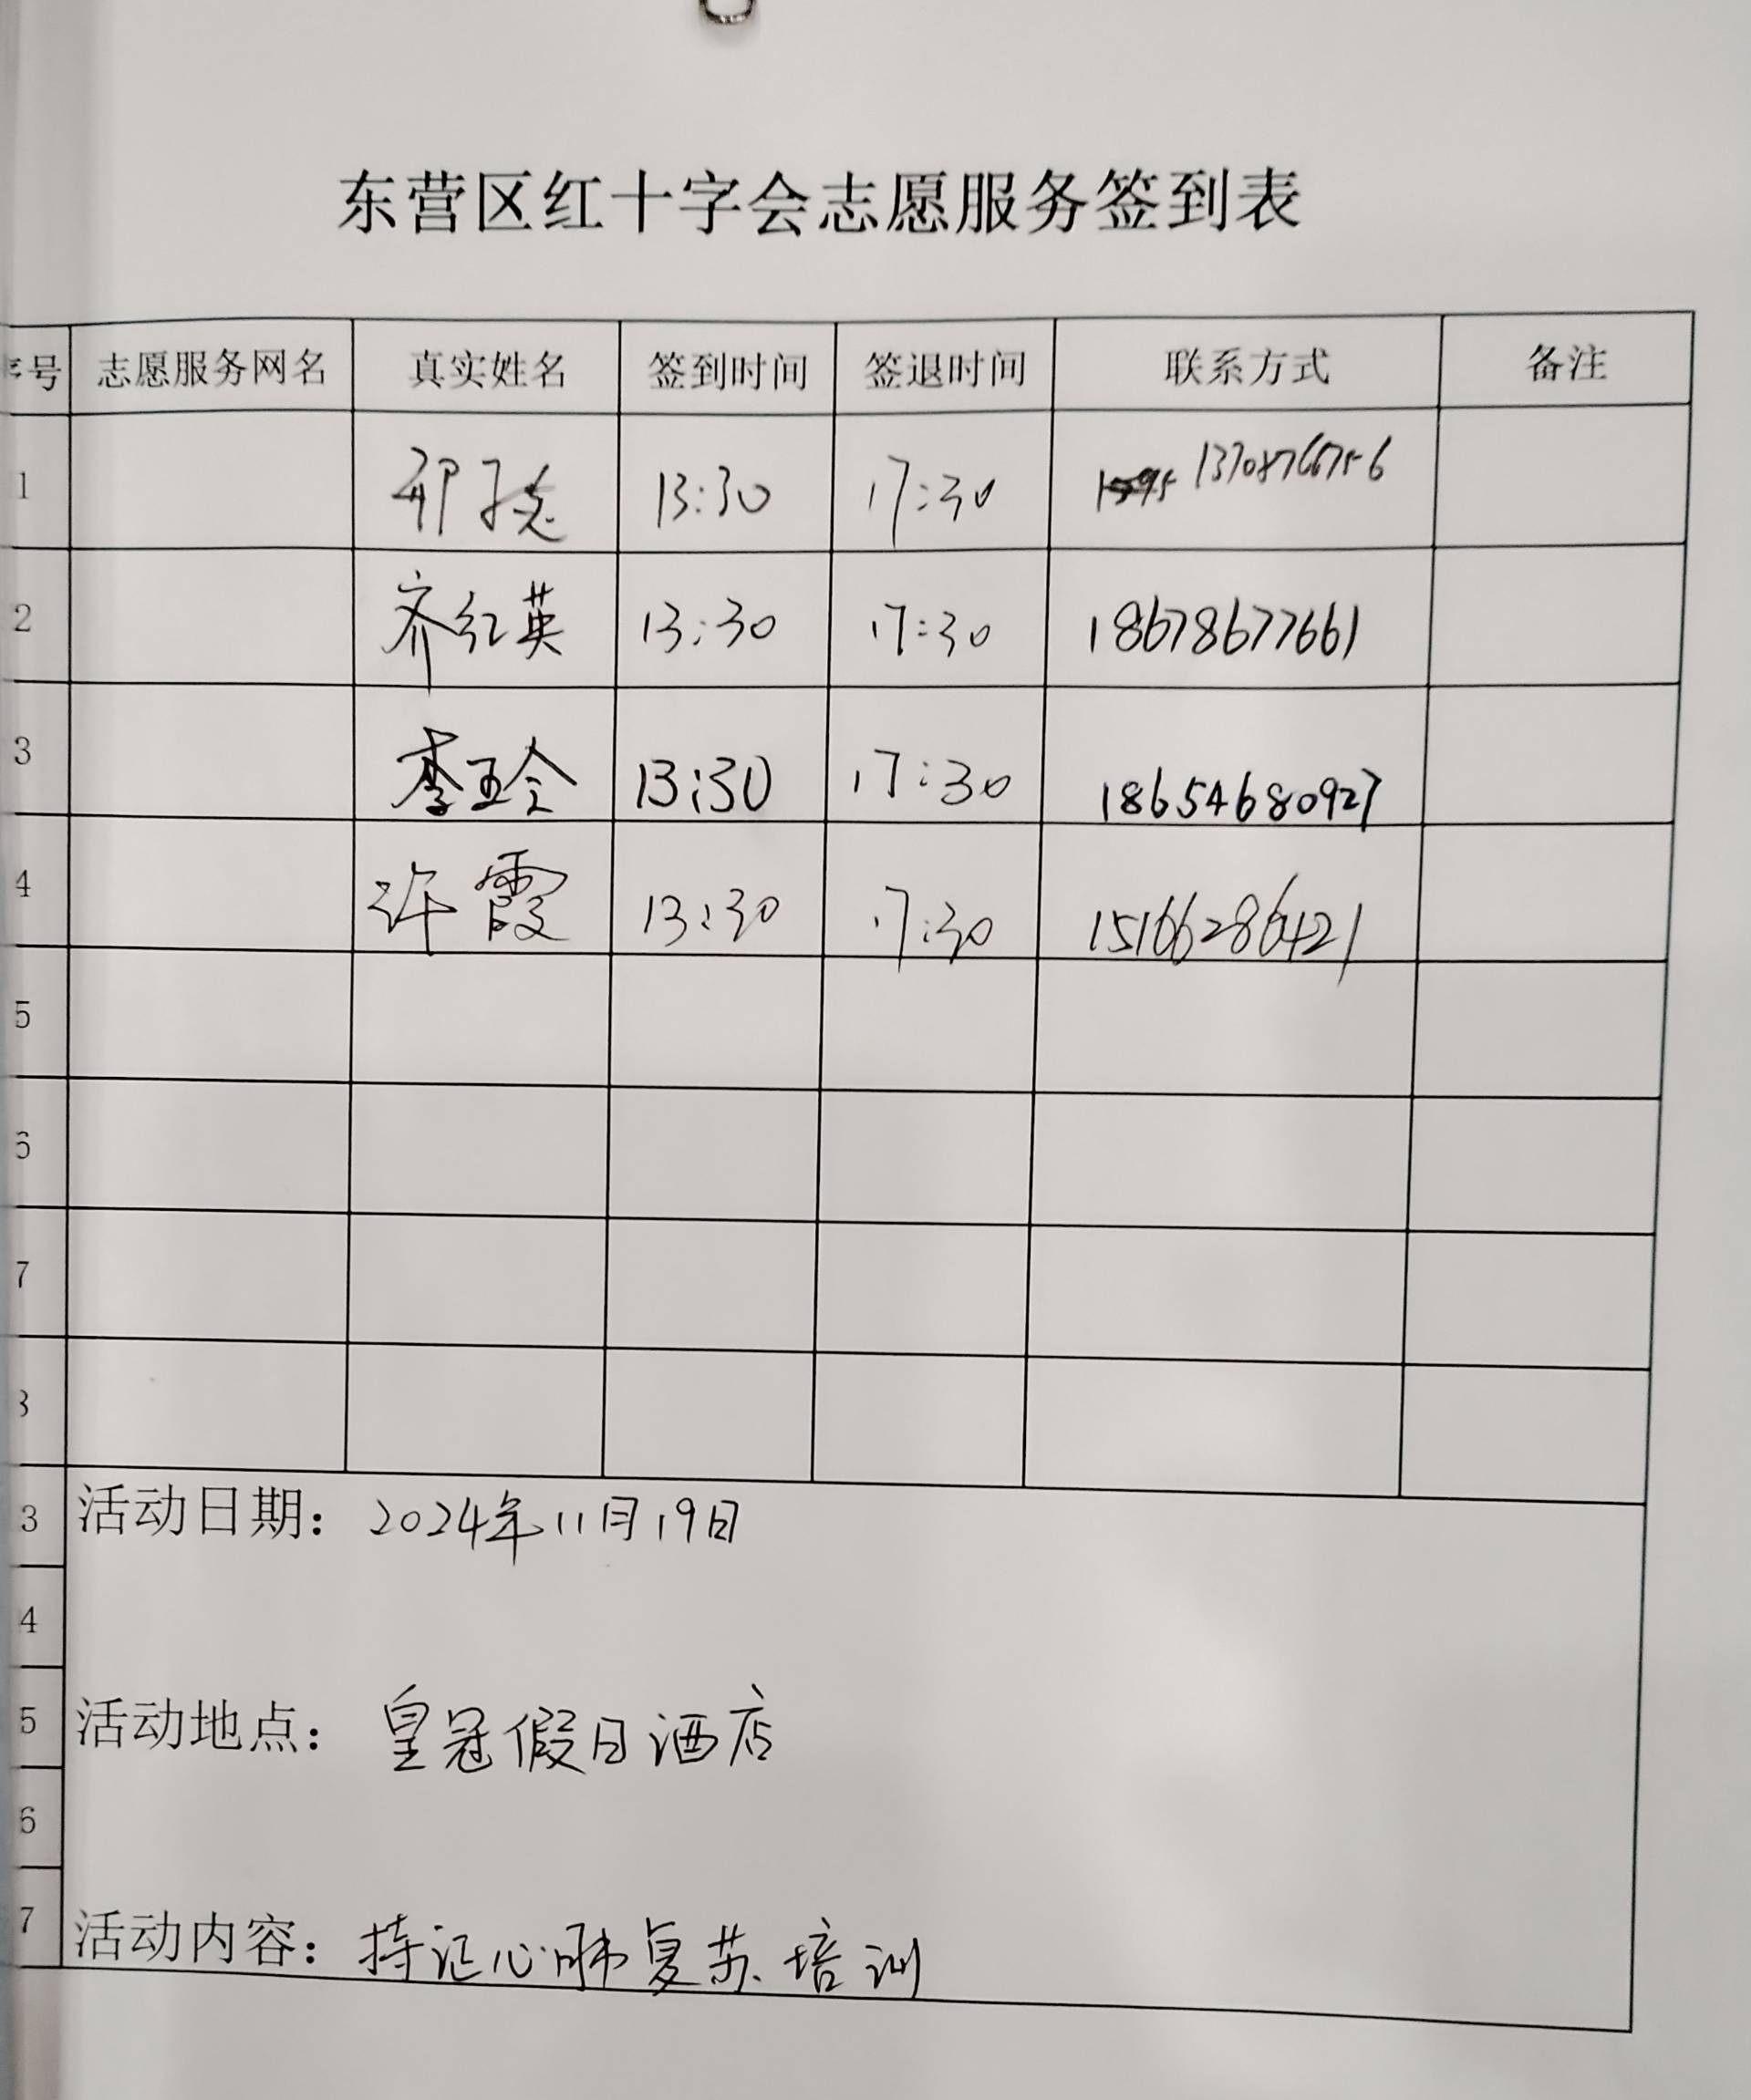 东营区红十字会志愿服务签到表
序号 志愿服务网名 真实姓名 签到时间 签退时间 联系方式 备注
1 13:30 17:30
2 齐红英 13:30 17:30 18678677661
3 李玉玲 13:30 17:30 18654680927
4 许霞 13:30 17:30 15166286421
5
6
7
8
3 活动日期：2024年11月19日
4
5 活动地点：皇冠假日酒店
6
7 活动内容：持证心肺复苏培训